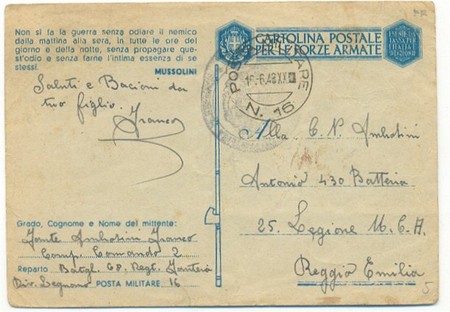 Non si fa la guerra senza odiare il nemico
dalla mattina alla sera, in tutte le ore del
giorno e della notte, senza propagare que-
st'odio e senza farne l'intima essenza di se
stessi.
MUSSOLINI
CARTOLINA POSTALE
PER LE FORZE ARMATE
Saluti e Bacioni dal
tuo figlio.
Franco
POSTA MILITARE
N. 16
Alla C. N. Ambosini
Antonio 430 Batteria
25. Legione M.C.A.
Reggio Emilia
Grado, Cognome e Nome del mittente:
Franco
Comp. Comando 2
Reparto Batgl. 68. Regt. Fanteria
Div. Legnano POSTA MILITARE 16